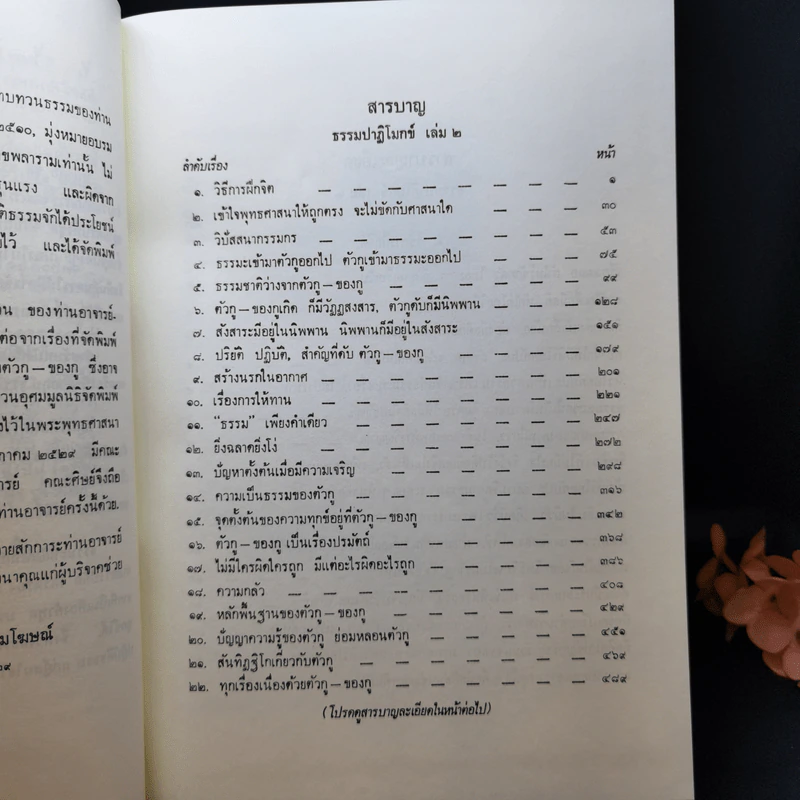 าบทวนธรรมของท่าน
๒๕๑๐, มุ่งหมายอบรม
ขพลารามเท่านั้น ไม่
รุนแรง และผิดจาก
ติธรรมจักได้ประโยชน์
ยไว้ และได้จัดพิมพ์
าน ของท่านอาจารย์.
ต่อจากเรื่องที่จัดพิมพ์
ตัวกู—ของกู ซึ่งอาจ
วนอุศมมูลนิธิจัดพิมพ์
งไว้ในพระพุทธศาสนา
าคม ๒๕๒๙ มีคณะ
ารย์ คณะศิษย์จึงถือ
ท่านอาจารย์ครั้งนี้ด้วย.
ายสักการะท่านอาจารย์
นาคุณแก่ผู้บริจาคช่วย
มโฆษณ์
สารบาญ
ธรรมปาฏิโมกข์ เล่ม ๒
ลำดับเรื่อง หน้า
๑. วิธีการฝึกจิต — — — — — — — — ๑
๒. เข้าใจพุทธศาสนาให้ถูกตรง จะไม่ขัดกับศาสนาใด — — — ๓๐
๓. วิปัสสนากรรมกร — — — — — — — — ๕๓
๔. ธรรมะเข้ามาตัวกูออกไป ตัวกูเข้ามาธรรมะออกไป — — — ๗๕
๕. ธรรมชาติว่างจากตัวกู—ของกู — — — — — — ๙๙
๖. ตัวกู—ของกูเกิด ก็มีวัฏฏสงสาร, ตัวกูดับก็มีนิพพาน — — — ๑๒๘
๗. สังสาระมีอยู่ในนิพพาน นิพพานก็มีอยู่ในสังสาระ — — — ๑๕๑
๘. ปริยัติ ปฏิบัติ, สำคัญที่ดับ ตัวกู—ของกู — — — — ๑๗๙
๙. สร้างนรกในอากาศ — — — — — — — — ๒๐๑
๑๐. เรื่องการให้ทาน — — — — — — — — ๒๒๑
๑๑. “ธรรม” เพียงคำเดียว — — — — — — — ๒๔๗
๑๒. ยิ่งฉลาดยิ่งโง่ — — — — — — — — ๒๗๒
๑๓. ปัญหาตั้งต้นเมื่อมีความเจริญ — — — — — ๒๙๘
๑๔. ความเป็นธรรมของตัวกู — — — — — — — ๓๑๖
๑๕. จุดตั้งต้นของความทุกข์อยู่ที่ตัวกู—ของกู — — — — — ๓๔๒
๑๖. ตัวกู—ของกู เป็นเรื่องปรมัตถ์ — — — — — — ๓๖๘
๑๗. ไม่มีใครผิดใครถูก มีแต่อะไรผิดอะไรถูก — — — — — ๓๘๖
๑๘. ความกลัว — — — — — — — — ๔๐๘
๑๙. หลักพื้นฐานของตัวกู—ของกู — — — — — — ๔๒๙
๒๐. ปัญญาความรู้ของตัวกู ย่อมหลอนตัวกู — — — — ๔๕๑
๒๑. สันทิฏฐิโกเกี่ยวกับตัวกู — — — — — — ๔๖๙
๒๒. ทุกเรื่องเนื่องด้วยตัวกู—ของกู — — — — — — ๔๘๙
(โปรดดูสารบาญละเอียดในหน้าต่อไป)